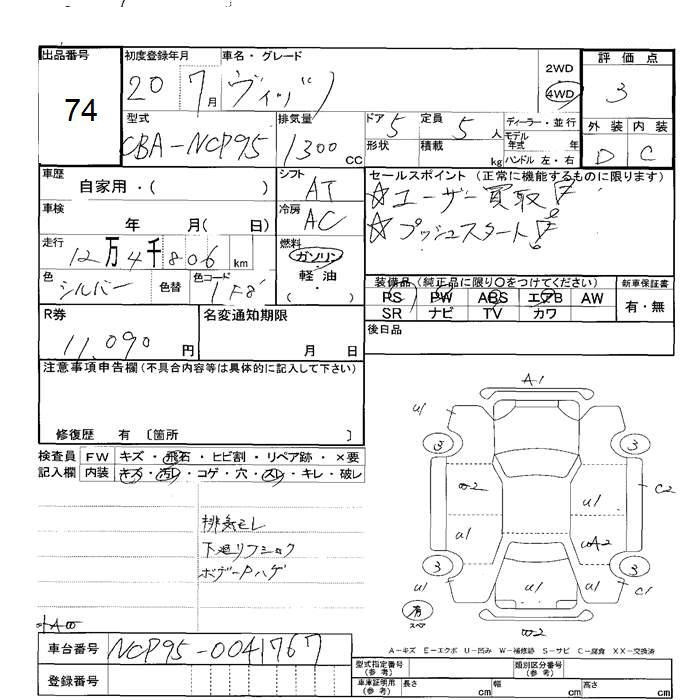 出品番号
74
初度登録年月
20 7月
車名・グレード
ヴィッツ
2WD
4WD
評価点
3
型式
CBA-NCP95
排気量
1300 CC
ドア 5
定員 5 人
形状
積載 kg
ディーラー・並行
モデル年式 年
ハンドル 左・右
外装 内装
D C
車歴
自家用・( )
シフト
AT
セールスポイント (正常に機能するものに限ります)
☆ユーザー買取
☆プッシュスタート
車検
年 月( 日)
冷房
AC
走行
12万4千806 km
燃料
ガソリン
軽油
( )
色
シルバー
色替
色コード
1F8
装備品 (純正品に限り○をつけてください)
PS PW ABS エアB AW
SR ナビ TV カワ
新車保証書
有・無
R券
11,090 円
名変通知期限
月 日
後日品
注意事項申告欄 (不具合内容等は具体的に記入して下さい)
修復歴 有 〔箇所 〕
検査員記入欄
FW キズ・飛石・ヒビ割・リペア跡・×要
内装 キズ・汚レ・コゲ・穴・スレ・キレ・破レ
排気モレ
下廻リフショク
ボデーPハゲ
A1
U1
U1
3
3
W2
U1
C2
U1
WA2
3
3
U1
U1
U1
U1
有
スペア
W2
A-キズ E-エクボ U-凹み W-補修跡 S-サビ C-腐食 XX-交換済
車台番号
NCP95-0041767
登録番号
型式指定番号 (参考)
類別区分番号 (参考)
車庫証明用 (参考)
長さ cm
幅 cm
高さ cm